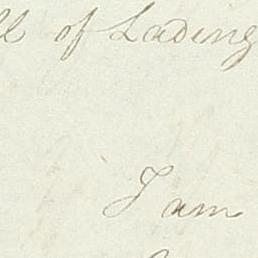 ll of Lading
I am